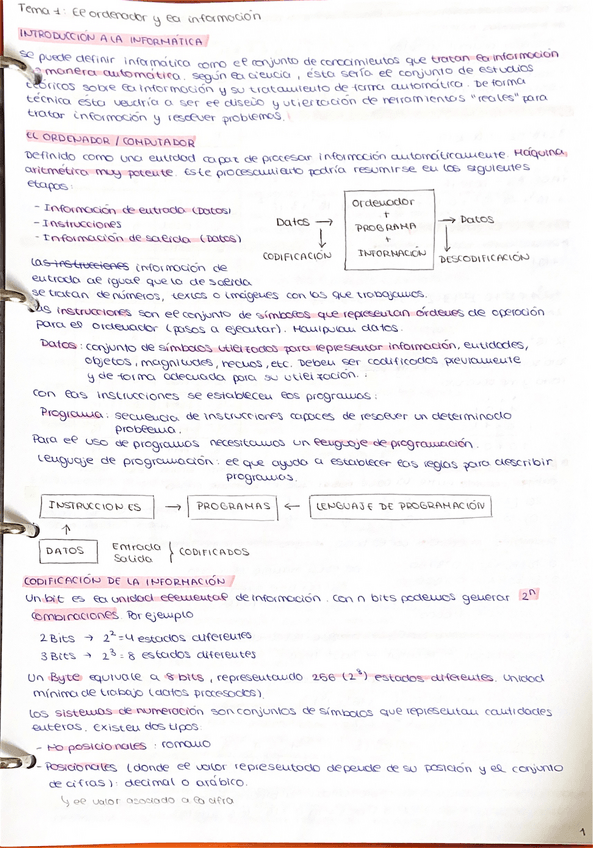 Tema 1: El ordenador y la información
INTRODUCCIÓN A LA INFORMÁTICA
Se puede definir informática como el conjunto de conocimientos que tratan la información
manera automática. Según la ciencia, ésta sería el conjunto de estudios
teóricos sobre la información y su tratamiento de forma automática. De forma
técnica ésta vendría a ser el diseño y utilización de herramientas "reales" para
tratar información y resolver problemas.
EL ORDENADOR / COMPUTADOR
Definido como una entidad capaz de procesar información automáticamente. Máquina
aritmética muy potente. Este procesamiento podría resumirse en las siguientes
etapas:
- Información de entrada (Datos)
- Instrucciones
- Información de salida (Datos)
Datos → Ordenador + PROGRAMA + INFORMACIÓN → Datos
↓ CODIFICACIÓN ↓ DESCODIFICACIÓN
Las instrucciones información de
entrada al igual que la de salida
se tratan de números, textos o imágenes con los que trabajamos.
Las instrucciones son el conjunto de símbolos que representan órdenes de operación
para el ordenador (pasos a ejecutar). Manipulan datos.
Datos: conjunto de símbolos utilizados para representar información, entidades,
objetos, magnitudes, hechos, etc. Deben ser codificados previamente
y de forma adecuada para su utilización.
Con las instrucciones se establecen los programas:
Programa: secuencia de instrucciones capaces de resolver un determinado
problema.
Para el uso de programas necesitamos un lenguaje de programación.
Lenguaje de programación: el que ayuda a establecer las reglas para describir
programas.
INSTRUCCIONES → PROGRAMAS ← LENGUAJE DE PROGRAMACIÓN
↑
DATOS Entrada Salida } CODIFICADOS
CODIFICACIÓN DE LA INFORMACIÓN
Un bit es la unidad elemental de información. Con n bits podemos generar 2ⁿ
combinaciones. Por ejemplo
2 Bits → 2² = 4 estados diferentes
3 Bits → 2³ = 8 estados diferentes
Un Byte equivale a 8 bits, representando 266 (2⁸) estados diferentes. Unidad
mínima de trabajo (datos procesados).
Los sistemas de numeración son conjuntos de símbolos que representan cantidades
enteras. Existen dos tipos:
- No posicionales: romano
- Posicionales (donde el valor representado depende de su posición y el conjunto
de cifras): decimal o arábico.
y el valor asociado a la cifra
1